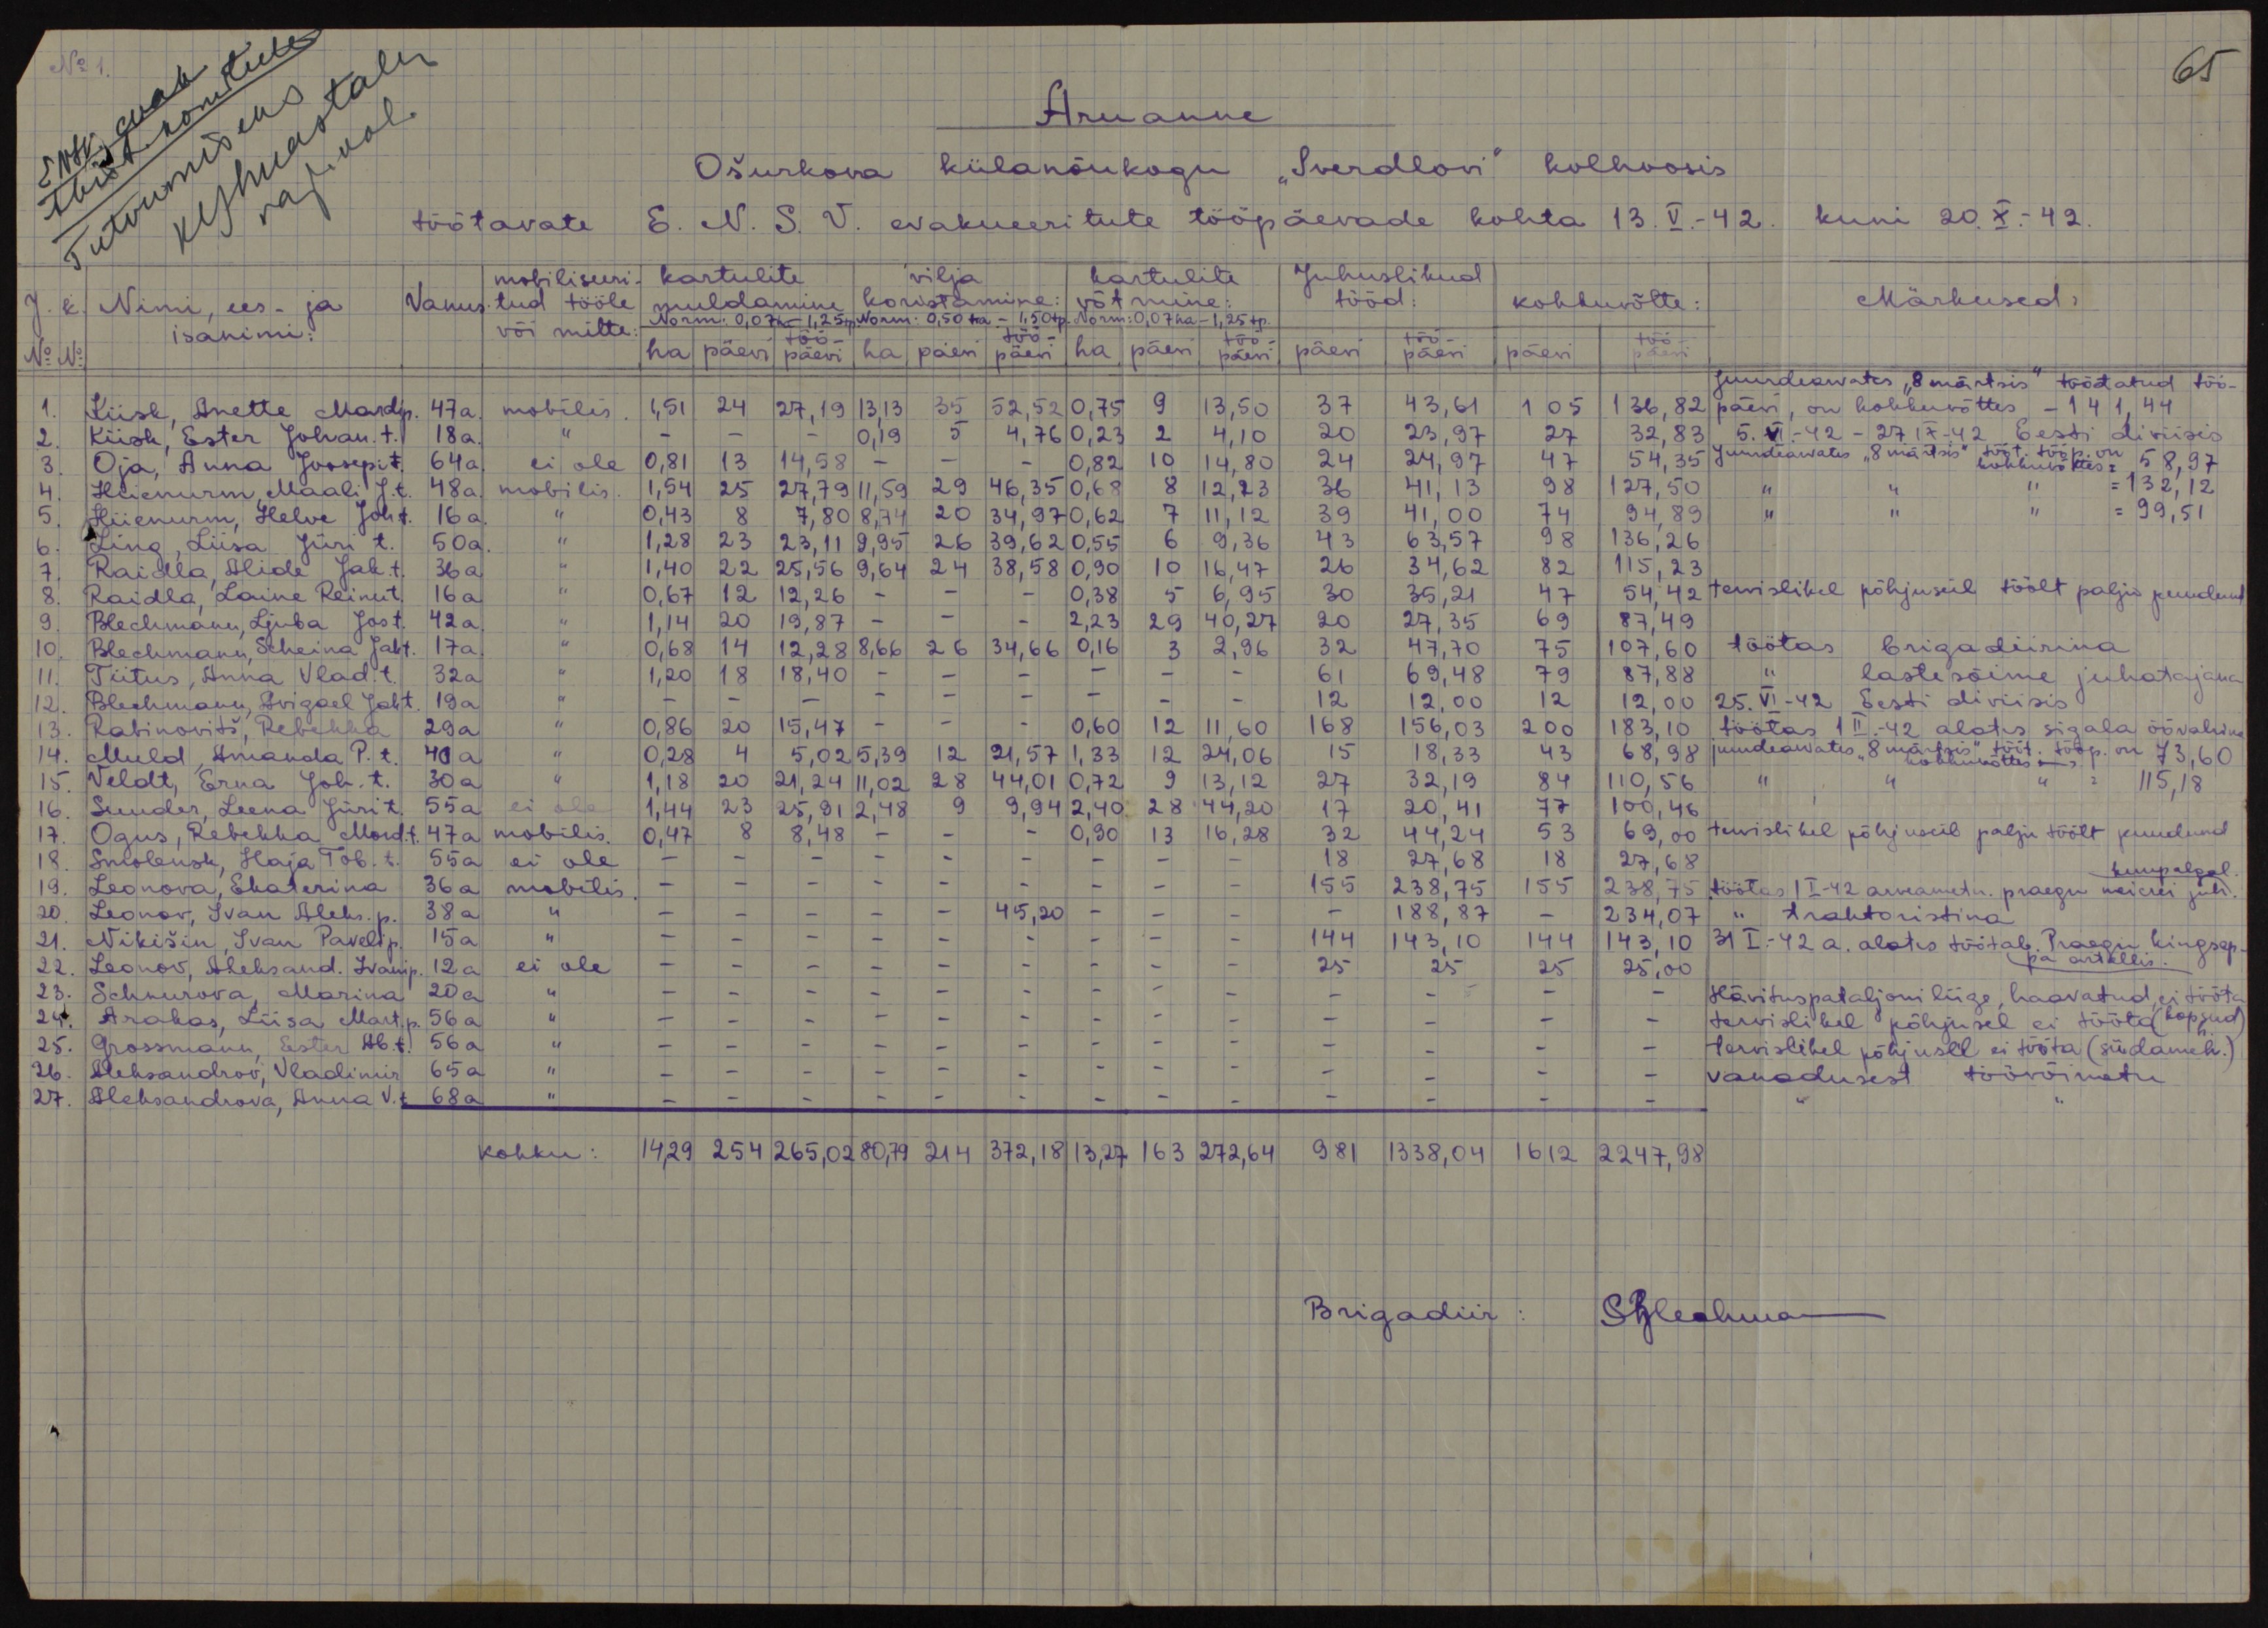 № 1.
65
Tutvumiseks
Aruanne
Ošurkova külanõukogu „Sverdlovi" kolhoosis
töötavate E. N. S. V. evakueeritute tööpäevade kohta 13. V.-42. kuni 20. X.-42.
J. k. №№ Nimi, ees- ja isanimi: Vanus mobiliseeritud tööle või mitte: kartulite muldamine Norm: 0,07ha-1,25tp. vilja koristamine: Norm: 0,50 ha - 1,50tp. kartulite võtmine: Norm: 0,07ha-1,25tp. Juhuslikud tööd: kokkuvõtte: Märkused:
ha päevi tööpäevi ha päevi tööpäevi ha päevi tööpäevi päevi tööpäevi päevi tööpäevi
Juurdearvates „8 märtsis" töötatud töö-
1. Kiisk, Anette Mardi p. 47a. mobilis. 1,51 24 27,19 13,13 35 52,52 0,75 9 13,50 37 43,61 105 136,82 päevi, on kokkuvõttes - 141,44
2. Kiisk, Ester Johan. t. 18a. " - - - 0,19 5 4,76 0,23 2 4,10 20 23,97 27 32,83 5. VI.-42 - 27 IX-42 Eesti diviisis
3. Oja, Anna Joosepi t. 64a. ei ole 0,81 13 14,58 - - - 0,82 10 14,80 24 24,97 47 54,35 Juurdearvates „8 märtsis" tööt. tööp. on kokkuvõttes = 58,97
4. Hiienurm, Maali J. t. 48a. mobilis. 1,54 25 27,79 11,59 29 46,35 0,68 8 12,23 36 41,13 98 127,50 " " " = 132,12
5. Hiienurm, Helve Joh t. 16a " 0,43 8 7,80 8,74 20 34,97 0,62 7 11,12 39 41,00 74 94,89 " " " = 99,51
6. Ling, Liisa Jüri t. 50a. " 1,28 23 23,11 9,95 26 39,62 0,55 6 9,36 43 63,57 98 136,26
7. Raidla, Alide Jak. t. 36a " 1,40 22 25,56 9,64 24 38,58 0,90 10 16,47 26 34,62 82 115,23
8. Raidla, Laine Reinu t. 16a " 0,67 12 12,26 - - - 0,38 5 6,95 30 35,21 47 54,42 tervislikel põhjuseil töölt palju puudund
9. Blechmann, Ljuba Jos t. 42a " 1,14 20 19,87 - - - 2,23 29 40,27 20 27,35 69 87,49
10. Blechmann, Scheina Jak t. 17a " 0,68 14 12,28 8,66 26 34,66 0,16 3 2,96 32 47,70 75 107,60 töötas brigadiirina
11. Tiitus, Anna Vlad. t. 32a " 1,20 18 18,40 - - - - - - 61 69,48 79 87,88 " lastesõime juhatajana
12. Blechmann, Avigael Jak t. 19a " - - - - - - - - - 12 12,00 12 12,00 25. VI-42 Eesti diviisis
13. Rabinovitš, Rebekka 29a " 0,86 20 15,47 - - - 0,60 12 11,60 168 156,03 200 183,10 töötas 1 II.-42 alates sigala öövahina
14. Muld, Amanda P. t. 40a " 0,28 4 5,02 5,39 12 21,57 1,33 12 24,06 15 18,33 43 68,98 juurdearvates „8 märtsis" tööt. tööp. on kokkuvõttes 73,60
15. Veldt, Erna Joh. t. 30a " 1,18 20 21,24 11,02 28 44,01 0,72 9 13,12 27 32,19 84 110,56 " " " = 115,18
16. Sunder, Leena Jüri t. 55a ei ole 1,44 23 25,91 2,48 9 9,94 2,40 28 44,20 17 20,41 77 100,46
17. Ogus, Rebekka Mord t. 47a mobilis. 0,47 8 8,48 - - - 0,90 13 16,28 32 44,24 53 69,00 tervislikel põhjuseil palju töölt puudund
18. Smolensk, Haja Tob. t. 55a ei ole - - - - - - - - - 18 27,68 18 27,68
19. Leonova, Ekaterina 36a mobilis. - - - - - - - - - 155 238,75 155 238,75 töötas 1 I-42 arveametn. praegu meierei juh. kuupalgal.
20. Leonov, Ivan Aleks. p. 38a " - - - - - 45,20 - - - - 188,87 - 234,07 " traktoristina
21. Nikišin, Ivan Paveli p. 15a " - - - - - - - - - 144 143,10 144 143,10 31 I.-42 a. alates töötab. Praegu kingsep-
pa artellis.
22. Leonov, Aleksand. Ivani p. 12a ei ole - - - - - - - - - 25 25 25 25,00
23. Schnurova, Marina 20a " - - - - - - - - - - - - - Hävituspataljoni liige, haavatud, ei tööta
24. Arakas, Liisa Mart. p. 56a " - - - - - - - - - - - - - tervislikel põhjusel ei tööta (kopsud)
25. Grossmann, Ester Ab. t. 56a " - - - - - - - - - - - - - tervislikel põhjusel ei tööta (südameh.)
26. Aleksandrov, Vladimir 65a " - - - - - - - - - - - - - vanadusest töövõimetu
27. Aleksandrova, Anna V. t. 68a " - - - - - - - - - - - - - " "
kokku: 14,29 254 265,02 80,79 214 372,18 13,27 163 272,64 981 1338,04 1612 2247,98
Brigadiir: SBlechman